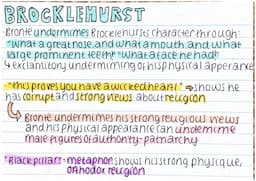 BROCKLEHURST
- Brontë undermines Brocklehursts character through:
"what a great nose, and what a mouth and what
large prominent teeth!" "What a face he had!"
↳ exclamitory undermining of his physical apperance
"this proves you have a wicked heart" ⇒ shows he
has corrupt and strong views about religion
↳ Brontë undermines his strong religious views
and his physical appearance can undermine
male figures of authority - patriarchy
"Black pillar" = metaphor shows his strong physique,
orthodox religion